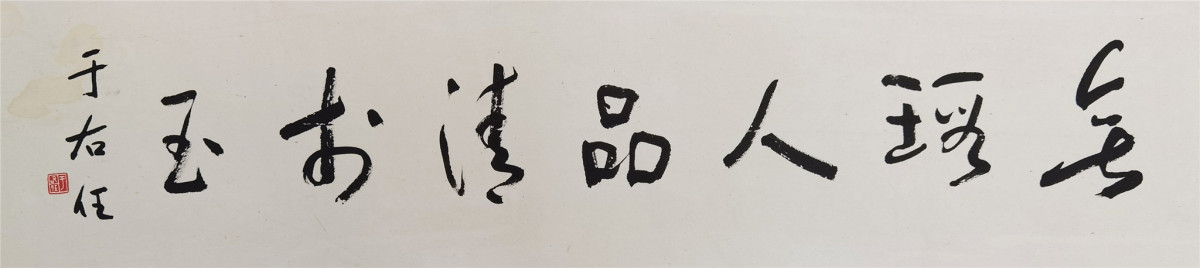 無瑕人品清於玉
于右任